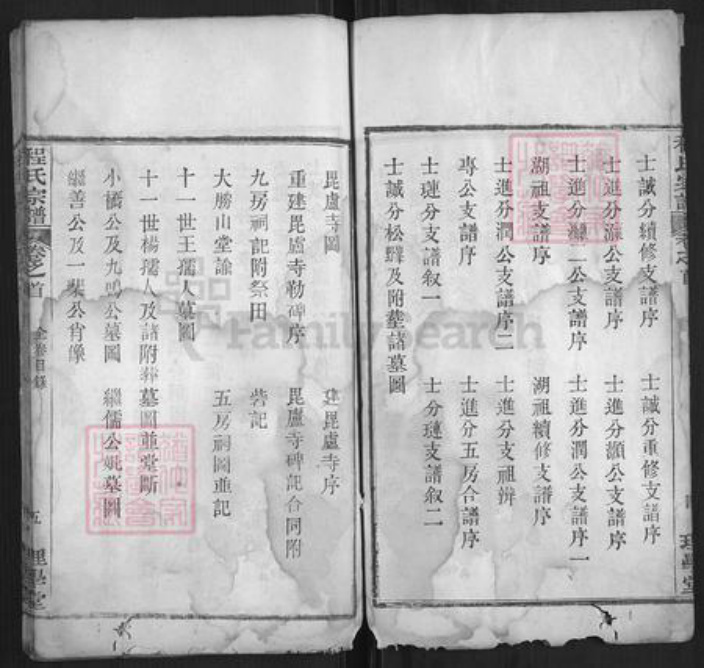 士誠分續修支譜序 士誠分重修支譜序
士進分灝公支譜序 士進分灝公支譜序
士進分灝二公支譜序 士進分潤公支譜序一
湖祖支譜序 湖祖續修支譜序
士進分潤公支譜序二 士進分支祖辨
專公支譜序 士進分五房合譜序
士璉分支譜叙一 士分璉支譜叙二
士誠分松 及附塟諸墓圖
理學堂
毘盧寺圖 建毘盧寺序
重建毘盧寺勒碑序 毘盧寺碑記合同附
九房祠記附祭田 砦記
大勝山堂諭 五房祠圖並記
十一世王孺人墓圖
十一世楊孺人及諸附葬墓圖並堂斷
小橋公及九鳴公墓圖 繼儒公妣墓圖
繼善公及一棐公肖像
程氏宗譜 卷之首 全卷目錄 五 理學堂
FamilySearch